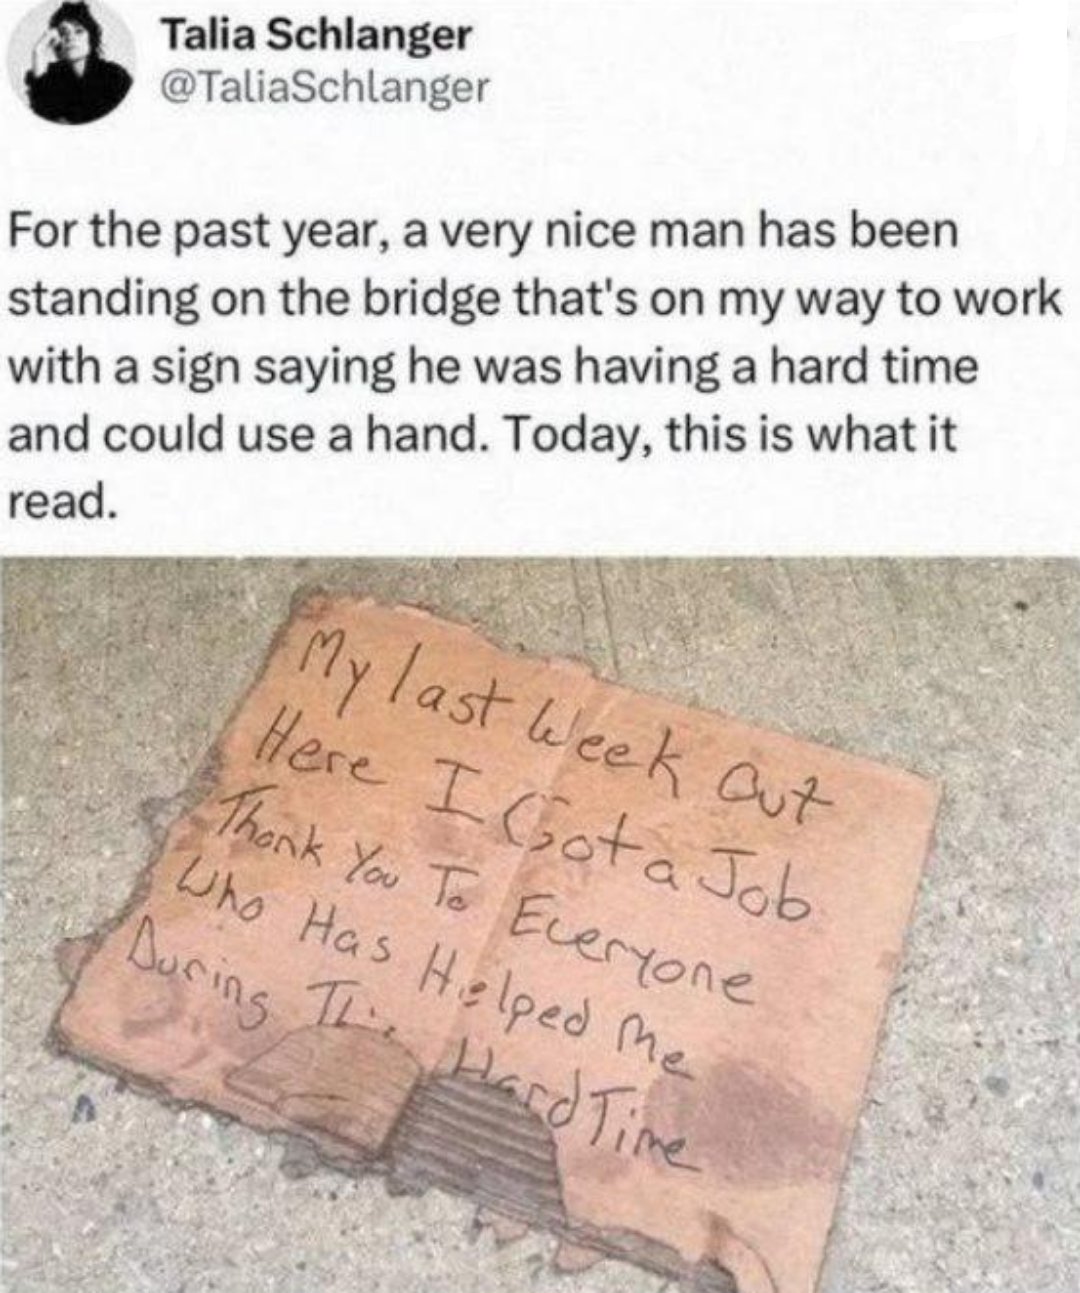 Talia Schlanger
@TaliaSchlanger
For the past year, a very nice man has been
standing on the bridge that's on my way to work
with a sign saying he was having a hard time
and could use a hand. Today, this is what it
read.
My last Week Out
Here I Got a Job
Thank You To Everyone
Who Has Helped Me
During Hard Time